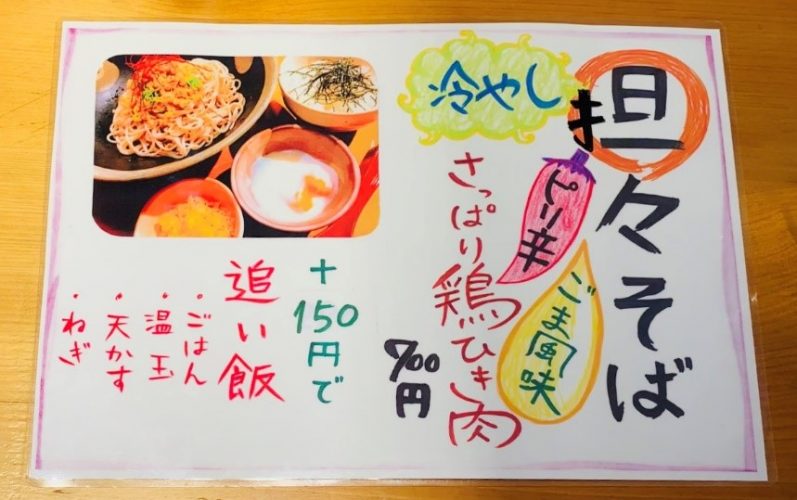 冷やし
担々そば
ピリ辛
ごま風味
さっぱり鶏ひき肉
700円
+150円で
追い飯
・ごはん
・温玉
・天かす
・ねぎ